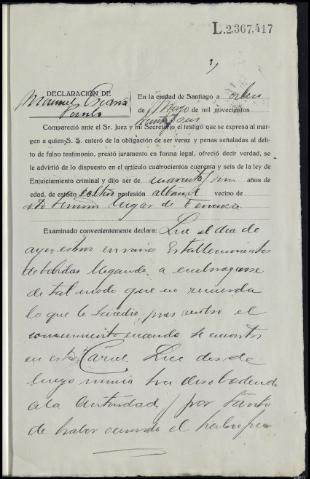 L.2367,417
DECLARACIÓN DE
Manuel
En la ciudad de Santiago a ocho
de Mayo de mil novecientos
treinta y seis
Compareció ante el Sr. Juez y mi Secretario el testigo que se expresa al margen
a quien S. S. enteró de la obligación de ser veraz y penas señaladas al de-
lito de falso testimonio, prestó juramento en forma legal, ofreció decir verdad, se
le advirtió de lo dispuesto en el artículo cuatrocientos cuarenta y seis de la ley de
Enjuiciamiento criminal y dijo ser de cuarenta y un años de
edad, de profesión vecino de
lugar de
Examinado convenientemente declara: Que el día de
ayer estuvo en varios Establecimientos
de bebidas llegando a embriagarse
de tal modo que no recuerda
lo que le sucedió, pues el
conocimiento cuando se encontró
en esta Carcel. Que desde
luego nunca ha desobedecido
a la autoridad, por tanto
de haber el